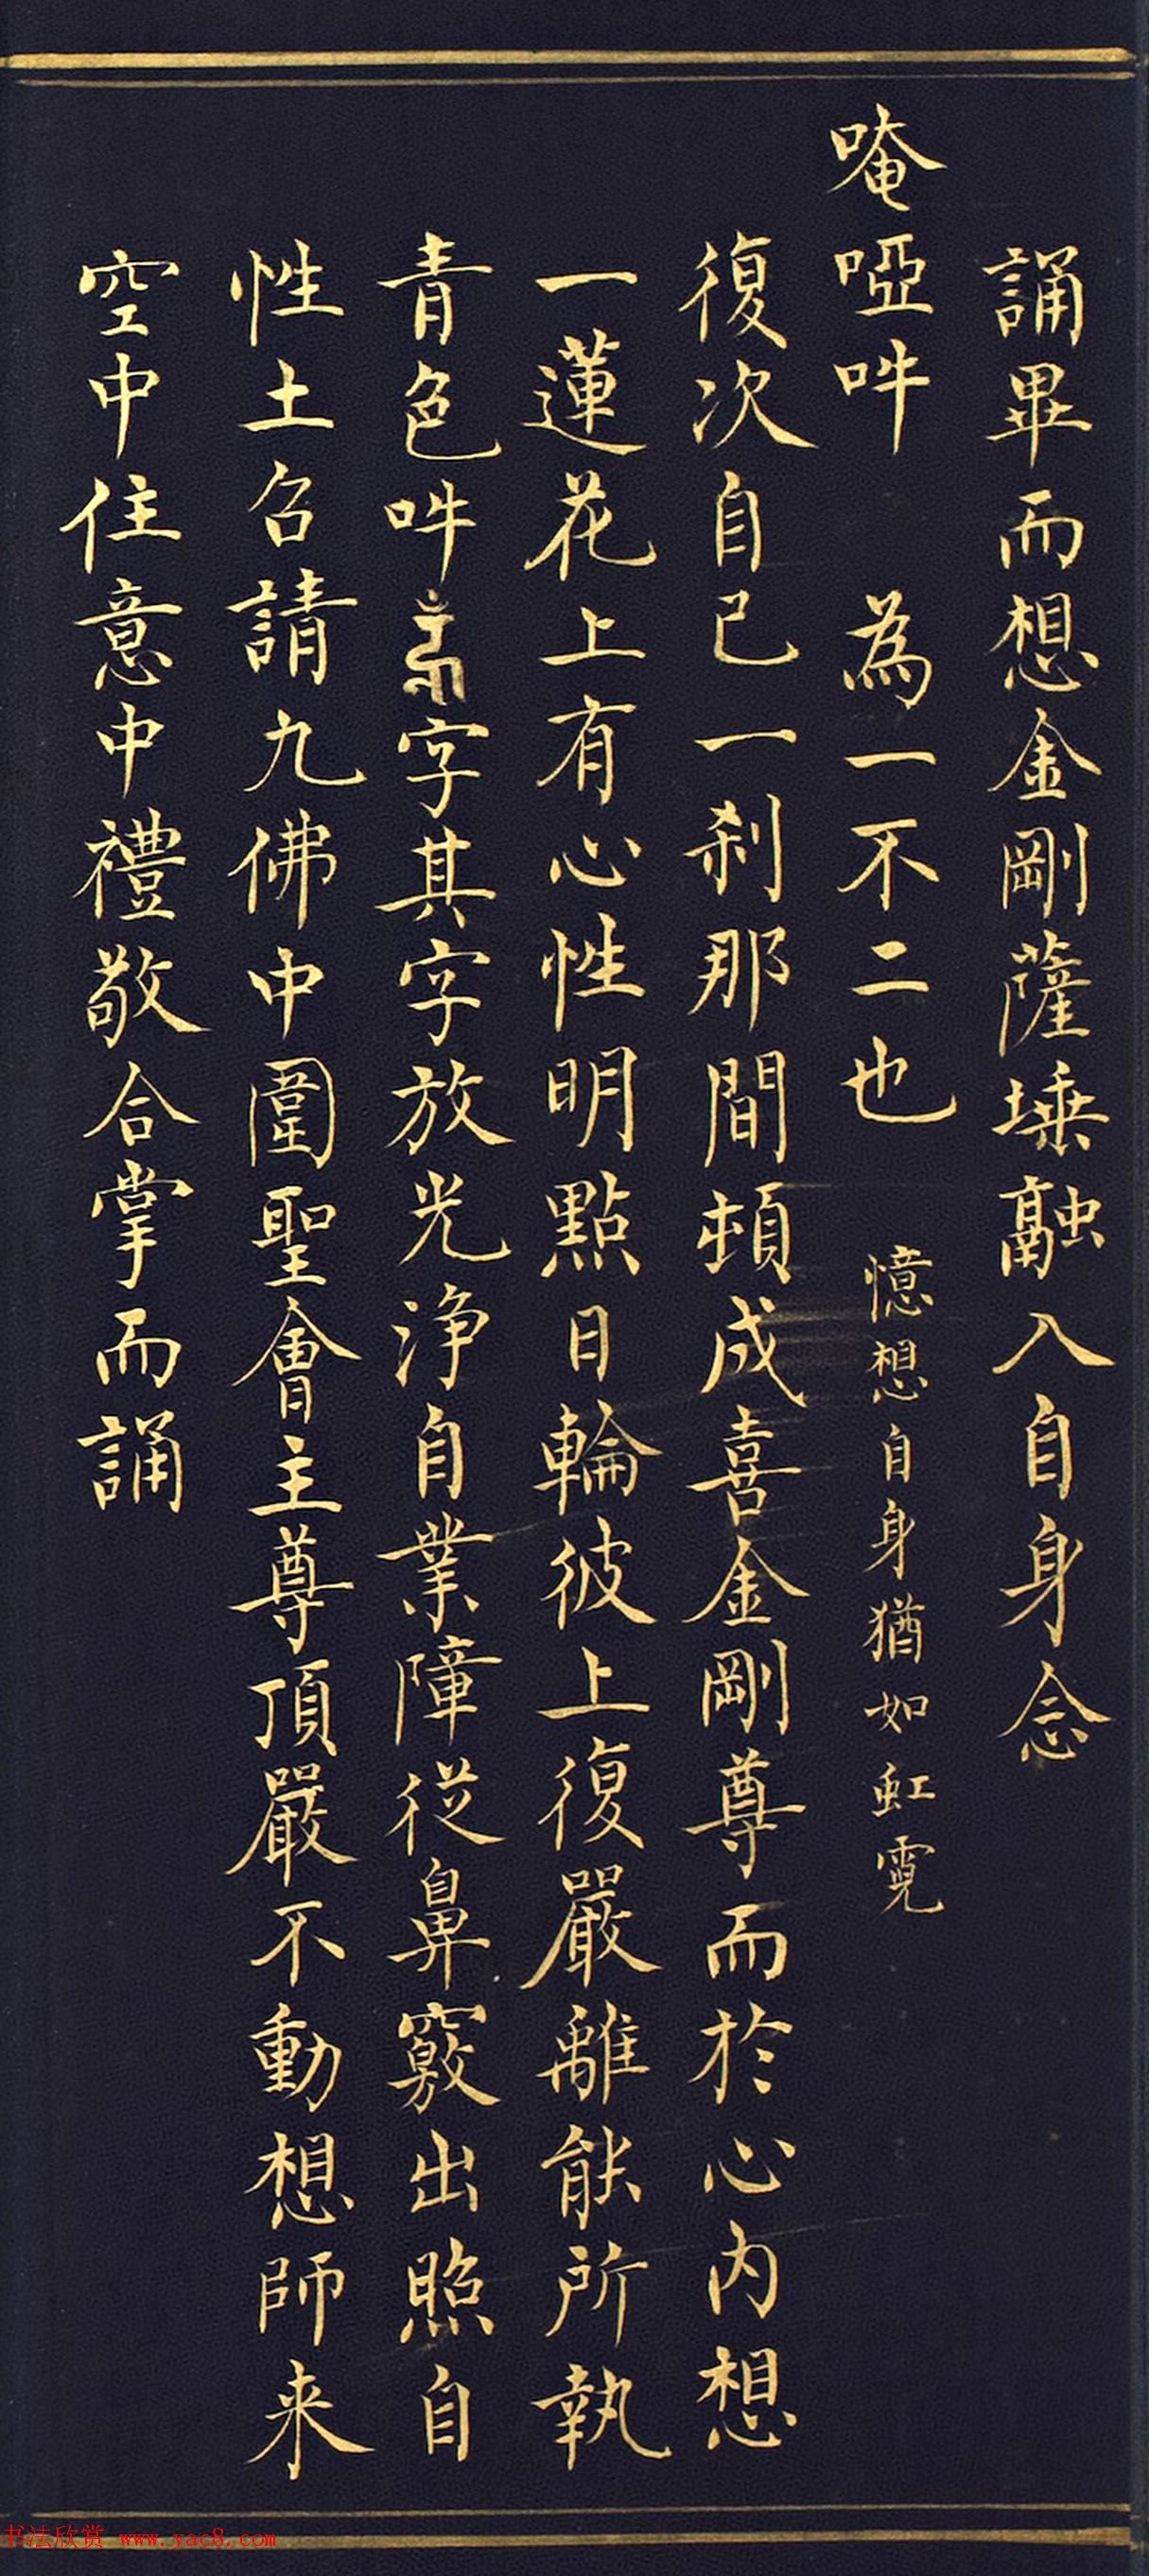 誦畢而想金剛薩埵融入自身念
唵啞吽 為一不二也 憶想自身猶如虹霓
復次自己一刹那間頓成喜金剛尊而於心內想
一蓮花上有心性明點日輪彼上復嚴離能所執
青色吽字其字放光淨自業障從鼻竅出照自
性土召請九佛中圍聖會主尊頂嚴不動想師来
空中住意中禮敬合掌而誦
书法欣赏 www.yac8.com